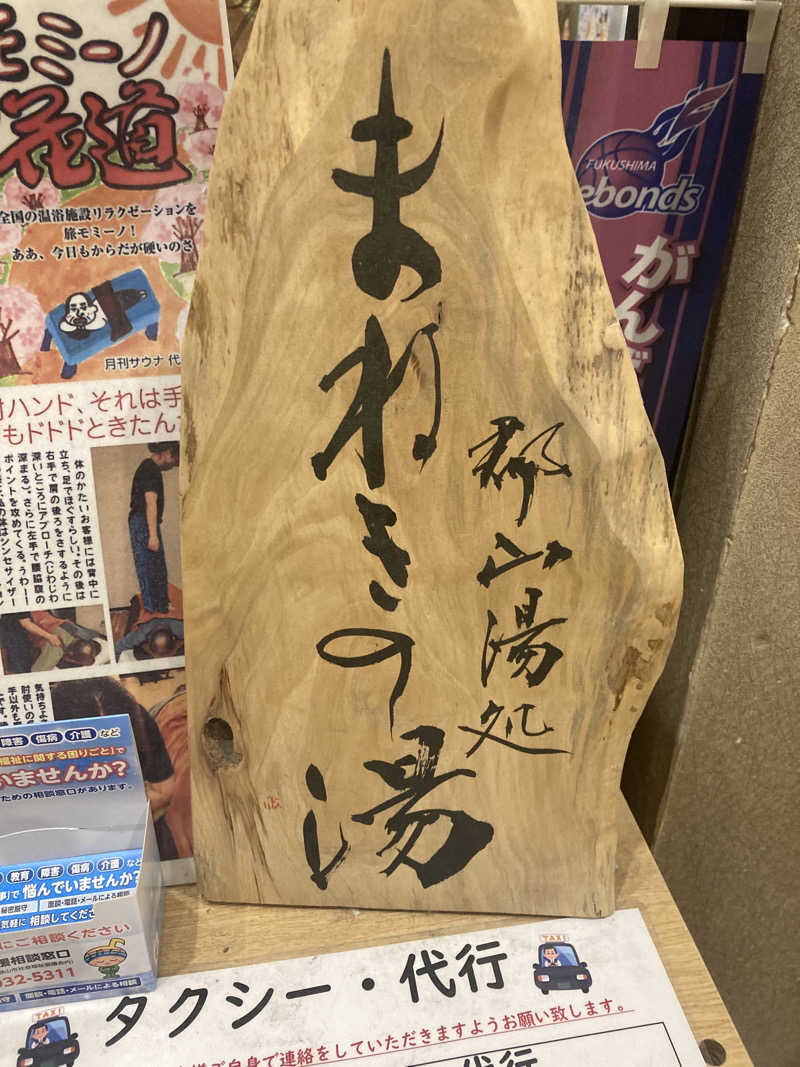 郡山湯処
まねきの湯
モミーノ
花道
全国の温浴施設リラクゼーションを
旅モミーノ！
ああ、今日もからだが硬いのさ
月刊サウナ 代
ハンド、それは手
もドドドときたん
体のかたいお客様には背中に
立ち、足でほぐすらしい！その後は
右手で肩の後ろをさするように
深いところにアプローチ（じわじわ
深まる）。さらに左手で腰脇腹の
ポイントを攻めてくる。うわー！
FUKUSHIMA
ebonds
がん
障害 傷病 介護 など
福祉に関する困りごと」で
いませんか？
ための相談窓口があります。
教育 障害 傷病 介護 など
で 悩んでいませんか？
秘密厳守 面談・電話・メールによる相談
気軽に 相談してくだ
にご相談ください
相談窓口
032-5311
面談・電話・メールによる相談
TAXI
タクシー・代行
TAXI
ご自身で連絡をしていただきますようお願い致します。
代行